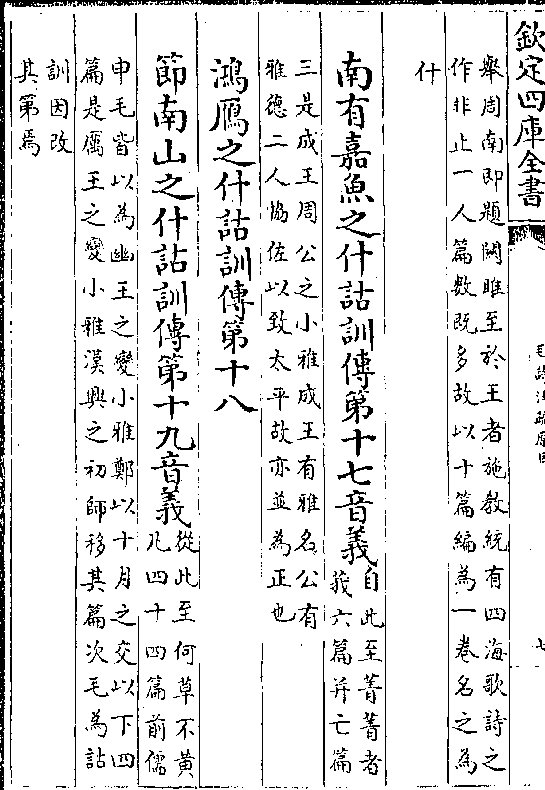 欽定四庫全書
毛詩注疏原目
七
舉周南即題闗雎至於王者施教統有四海歌詩之
作非止一人篇數既多故以十篇編為一卷名之為
什
南有嘉魚之什詁訓傳第十七音義自此至菁菁者
莪六篇并亡篇
三是成王周公之小雅成王有雅名公有
雅徳二人協佐以致太平故亦並為正也
鴻鴈之什詁訓傳第十八
節南山之什詁訓傳第十九音義從此至何草不黄
凡四十四篇前儒
申毛皆以為幽王之變小雅鄭以十月之交以下四
篇是厲王之變小雅漢興之初師移其篇次毛為詁
訓因改
其第焉